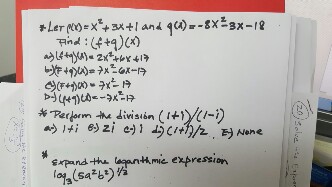 * Let f(x) = x² + 3x + 1 and g(x) = -8x² - 3x - 18
Find: (f+g)(x)
a) (f+g)(x) = 2x² + 6x + 17
b) (f+g)(x) = 7x² - 6x - 17
c) (f+g)(x) = 7x² - 17
D) (f+g)(x) = -7x² - 17
* Perform the division (1+i)/(1-i)
a) 1+i b) 2i c) i d) (1+i)/2 E) None
* Expand the logarithmic expression
log₁₃ (5a²b²)^1/3